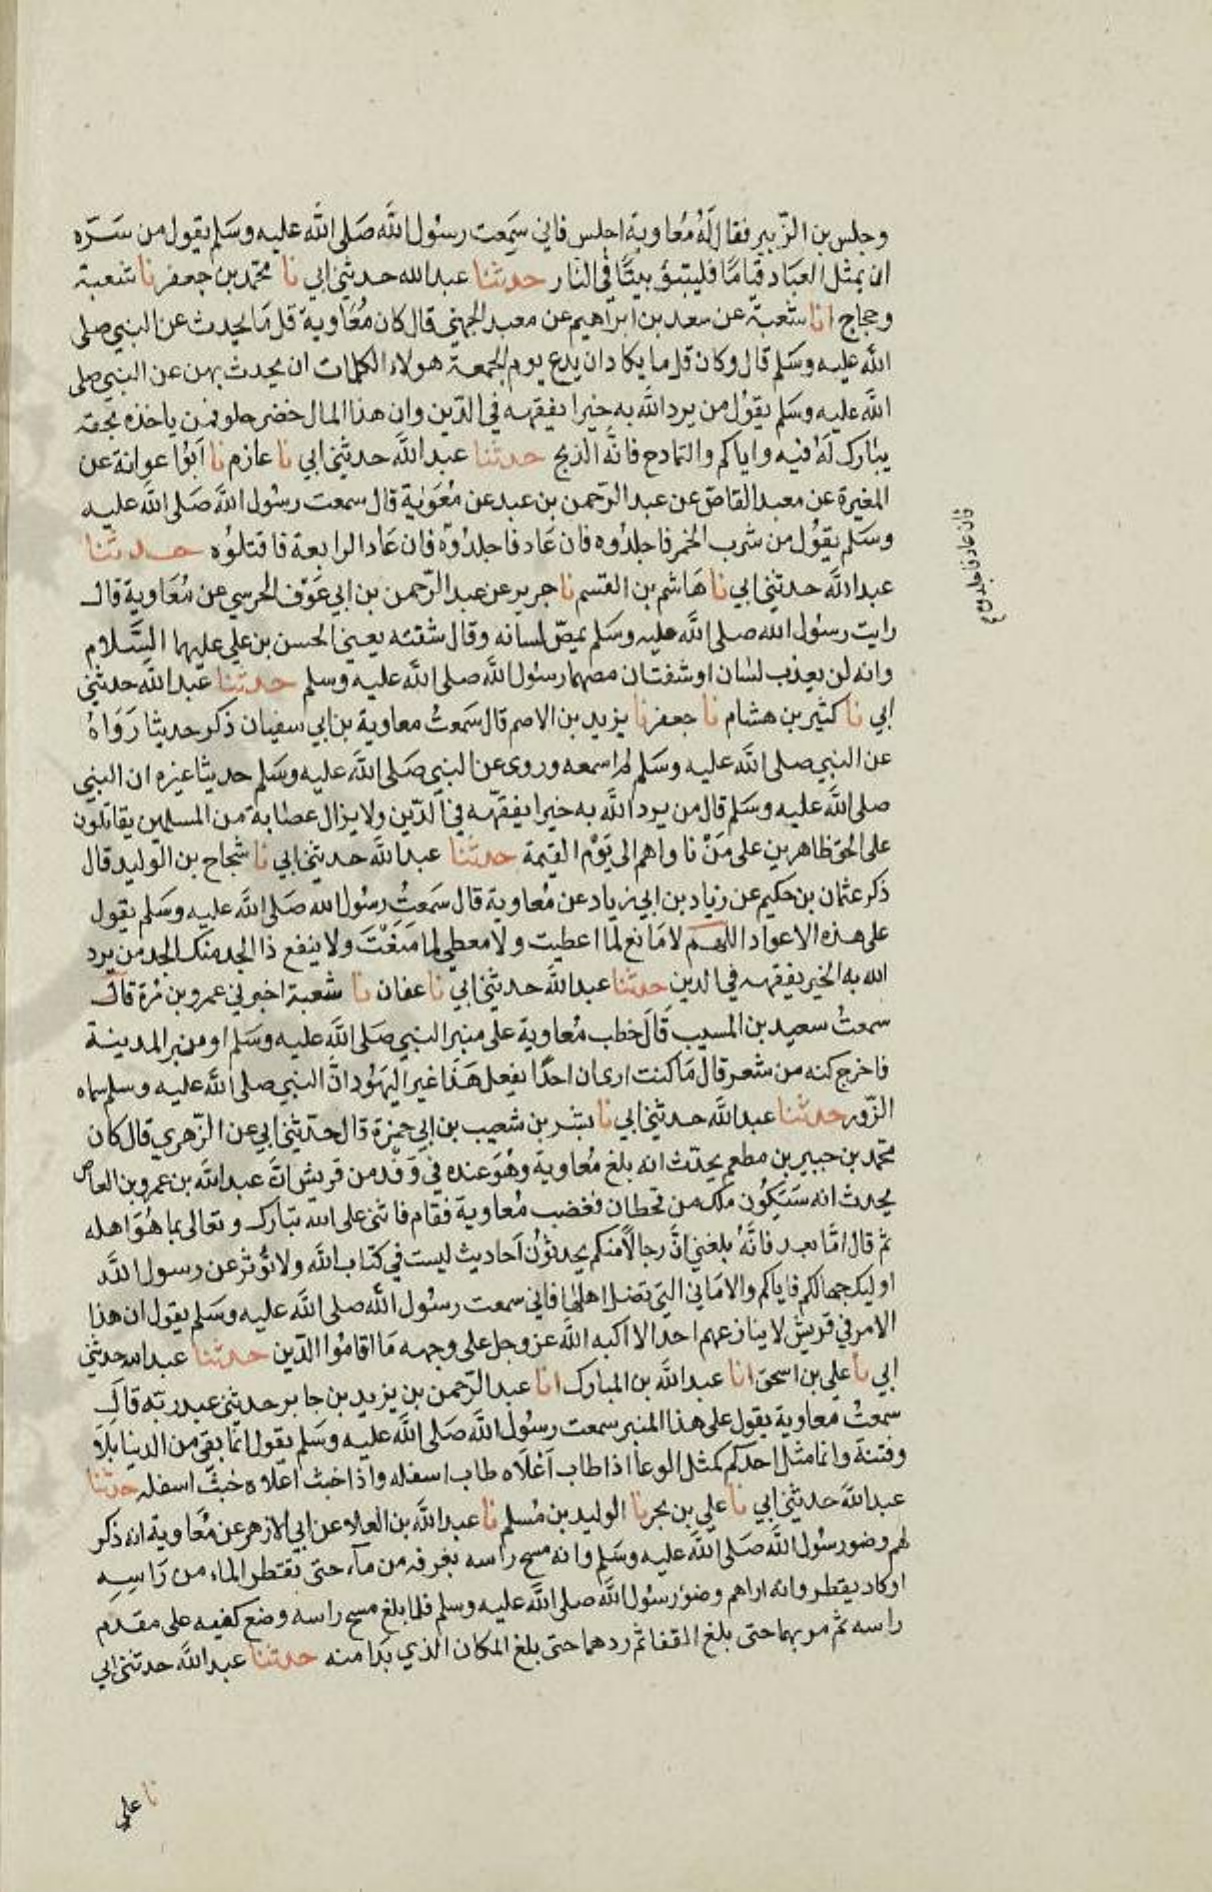 وجلس بن الزبير فقال له معاوية اجلس فاني سمعت رسول الله صلى الله عليه وسلم يقول من سره
ان يمثل العباد قياما فليتبؤ بيتا في النار حدثنا عبد الله حدثني ابي نا محمد بن جعفر نا شعبة
وحجاج انا شعبة عن سعد بن ابراهيم عن معبد الجهني قال كان معاوية قل ما يحدث عن النبي صلى
الله عليه وسلم قال وكان قل ما يكاد ان يدع يوم الجمعة هولاء الكلمات ان يحدث بهن عن النبي صلى
الله عليه وسلم يقول من يرد الله به خيرا يفقهه في الدين وان هذا المال خضر حلو فمن ياخذه بحقه
يبارك له فيه واياكم والتمادح فانه الذبح حدثنا عبد الله حدثني ابي نا عازم نا ابوا عوانة عن
المغيرة عن معبد القاص عن عبد الرحمن بن عبد عن معوية قال سمعت رسول الله صلى الله عليه
وسلم يقول من شرب الخمر فاجلدوه فان عاد فاجلدوه فان عاد الرابعة فاقتلوه حدثنا
عبد الله حدثني ابي نا هاشم بن القسم نا جرير عن عبد الرحمن بن ابي عوف الجرسي عن معاوية قال
رايت رسول الله صلى الله عليه وسلم يمص لسانه وقال شفته يعني الحسن بن علي عليهما السلام
وانه لن يعذب لسان او شفتان مصهما رسول الله صلى الله عليه وسلم حدثنا عبد الله حدثني
ابي نا كثير بن هشام نا جعفر نا يزيد بن الاصم قال سمعت معاوية بن ابي سفيان ذكر حديثا رواه
عن النبي صلى الله عليه وسلم لم اسمعه وروى عن النبي صلى الله عليه وسلم حديثا غيره ان النبي
صلى الله عليه وسلم قال من يرد الله به خيرا يفقهه في الدين ولا يزال عصابة من المسلمين يقاتلون
على الحق ظاهرين على من ناواهم الى يوم القيمة حدثنا عبد الله حدثني ابي نا شجاع بن الوليد قال
ذكر عثمان بن حكيم عن زياد بن ابي زياد عن معاوية قال سمعت رسول الله صلى الله عليه وسلم يقول
على هذه الاعواد اللهم لا مانع لما اعطيت ولا معطي لما منعت ولا ينفع ذا الجد منك الجد من يرد
الله به الخير يفقهه في الدين حدثنا عبد الله حدثني ابي نا عفان نا شعبة اخبرني عمرو بن مرة قال
سمعت سعيد بن المسيب قال خطب معاوية على منبر النبي صلى الله عليه وسلم او منبر المدينة
فاخرج كنه من شعر قال ما كنت ارى ان احدا يفعل هذا غير اليهود ان النبي صلى الله عليه وسلم سماه
الزور حدثنا عبد الله حدثني ابي نا بشر بن شعيب بن ابي حمزة قال حدثني ابي عن الزهري قال كان
محمد بن جبير بن مطعم يحدث انه بلغ معاوية وهو عنده في وفد من قريش ان عبد الله بن عمرو بن العاص
يحدث انه سيكون ملك من قحطان فغضب معاوية فقام فاثنى على الله تبارك وتعالى بما هو اهله
ثم قال اما بعد فانه بلغني ان رجالا منكم يحدثون احاديث ليست في كتاب الله ولا تؤثر عن رسول الله
اوليك جهالكم فاياكم والاماني التي تضل اهلها فاني سمعت رسول الله صلى الله عليه وسلم يقول ان هذا
الامر في قريش لا ينازعهم احد الا اكبه الله عز وجل على وجهه ما اقاموا الدين حدثنا عبد الله حدثني
ابي نا علي بن اسحق انا عبد الله بن المبارك انا عبد الرحمن بن يزيد بن جابر حدثني عبد ربه قال
سمعت معاوية يقول على هذا المنبر سمعت رسول الله صلى الله عليه وسلم يقول انما بقي من الدنيا بلاء
وفتنة وانما مثل احدكم كمثل الوعا اذا طاب اعلاه طاب اسفله واذا خبث اعلاه خبث اسفله حدثنا
عبد الله حدثني ابي نا علي بن بحر نا الوليد بن مسلم نا عبد الله بن العلاء عن ابي الازهر عن معاوية انه ذكر
لهم وضو رسول الله صلى الله عليه وسلم وانه مسح راسه بغرفه من ماء حتى تقتطر الماء من راسه
او كاد يقطر وانه اراهم وضوء رسول الله صلى الله عليه وسلم فلما بلغ مسح راسه وضع كفيه على مقدم
راسه ثم مر بهما حتى بلغ القفا ثم ردهما حتى بلغ المكان الذي بدا منه حدثنا عبد الله حدثني ابي
فان عاد فاجلدوه
نا علي